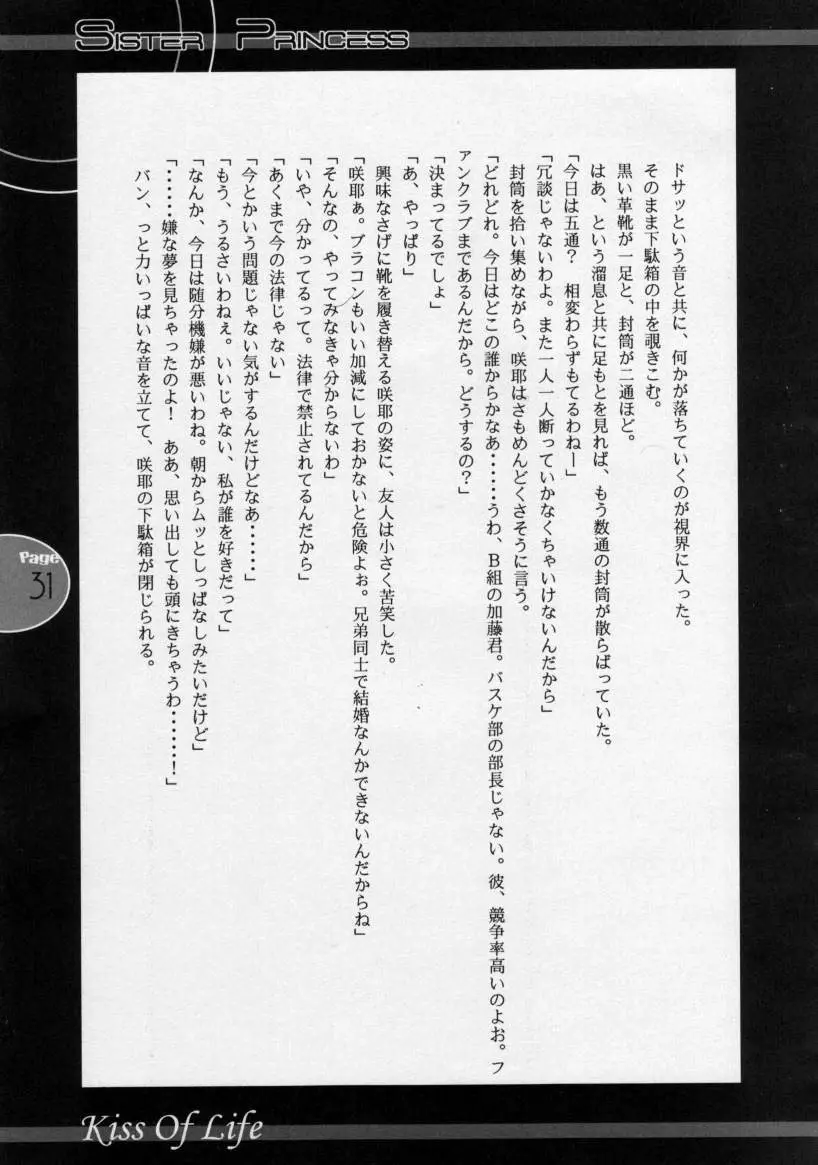 SISTER PRINCESS
ドサッという音と共に、何かが落ちていくのが視界に入った。
そのまま下駄箱の中を覗きこむ。
黒い革靴が一足と、封筒が二通ほど。
はあ、という溜息と共に足もとを見れば、もう数通の封筒が散らばっていた。
「今日は五通？　相変わらずもてるわねー」
「冗談じゃないわよ。また一人一人断っていかなくちゃいけないんだから」
封筒を拾い集めながら、咲耶はさもめんどくさそうに言う。
「どれどれ。今日はどこの誰からかなあ‥‥‥うわ、Ｂ組の加藤君。バスケ部の部長じゃない。彼、競争率高いのよお。フ
アンクラブまであるんだから。どうするの？」
「決まってるでしょ」
「あ、やっぱり」
興味なさげに靴を履き替える咲耶の姿に、友人は小さく苦笑した。
「咲耶ぁ。ブラコンもいい加減にしておかないと危険よぉ。兄弟同士で結婚なんかできないんだからね」
「そんなの、やってみなきゃ分からないわ」
「いや、分かってるって。法律で禁止されてるんだから」
「あくまで今の法律じゃない」
「今とかいう問題じゃない気がするんだけどなあ‥‥‥」
「もう、うるさいわねぇ。いいじゃない、私が誰を好きだって」
「なんか、今日は随分機嫌が悪いわね。朝からムッとしっぱなしみたいだけど」
「‥‥‥嫌な夢を見ちゃったのよ！　ああ、思い出しても頭にきちゃうわ‥‥‥！」
バン、っと力いっぱいな音を立てて、咲耶の下駄箱が閉じられる。
Page
31
Kiss Of Life